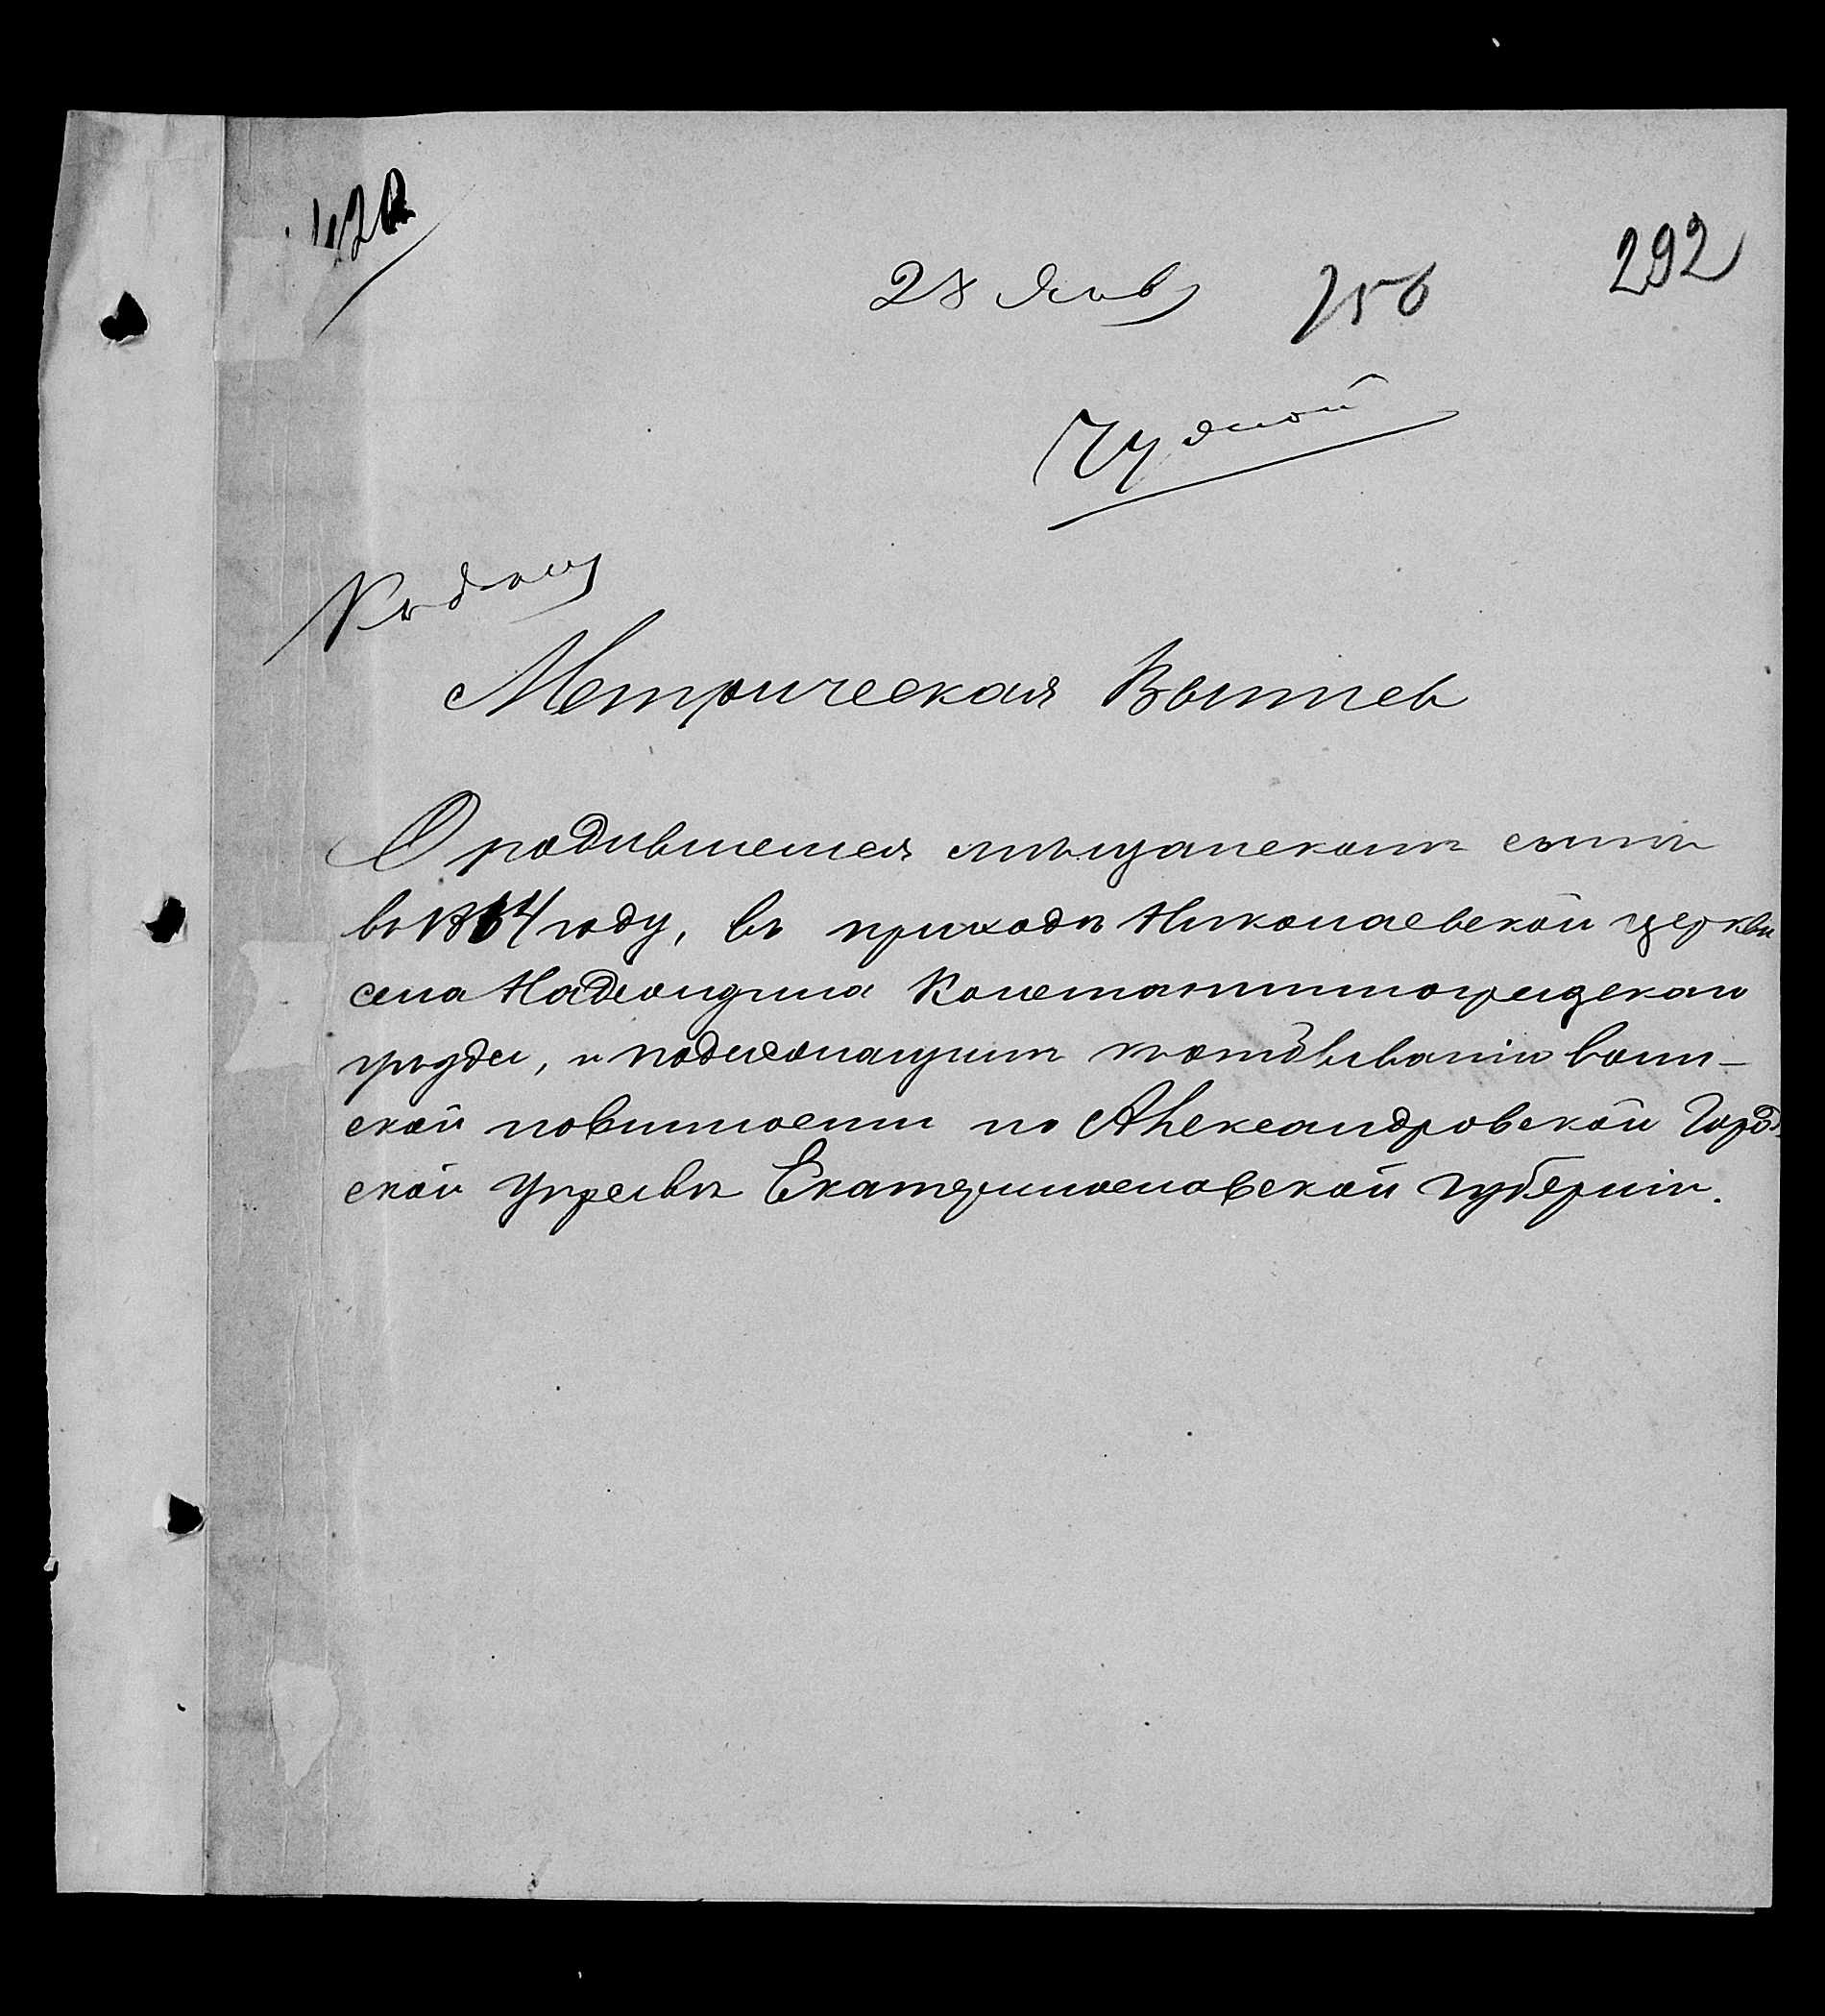 292
28 Янв 756
Чудной
Къ дѣлу
Метрическая Выпись
О родившемся мѣщанскомъ сынѣ
въ 1864 году, въ приходѣ Николаевской церкви
села Надеждина Константиноградскаго
уѣзда, и подлежащимъ къ отбыванію воин-
ской повинности по Александровской Город-
ской Управѣ Екатеринославской губерніи.